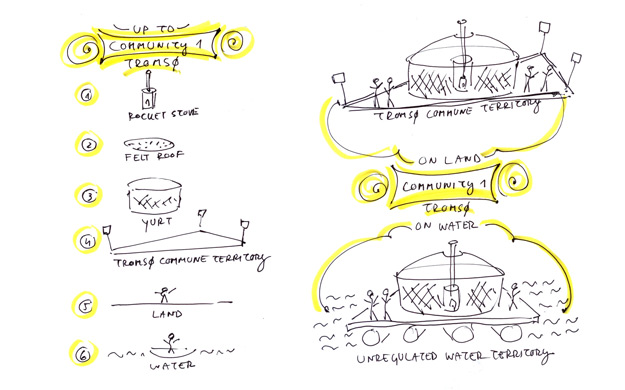 UP TO
COMMUNITY 1
TROMSØ
1
1
ROCKET STOVE
2
FELT ROOF
3
YURT
4
TROMSØ COMMUNE TERRITORY
5
LAND
6
WATER
TROMSØ COMMUNE TERRITORY
ON LAND
COMMUNITY 1
TROMSØ
ON WATER
UNREGULATED WATER TERRITORY